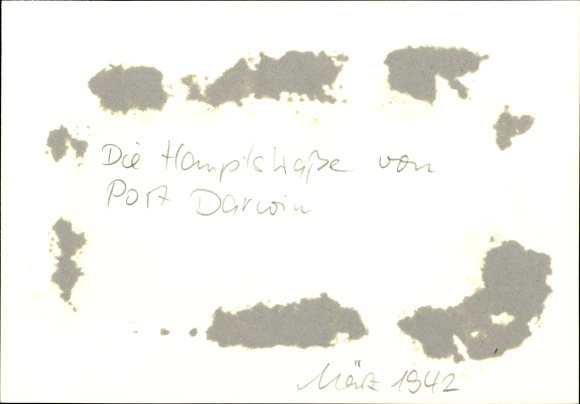 Die Hauptstraße von
Port Darwin
März 1942